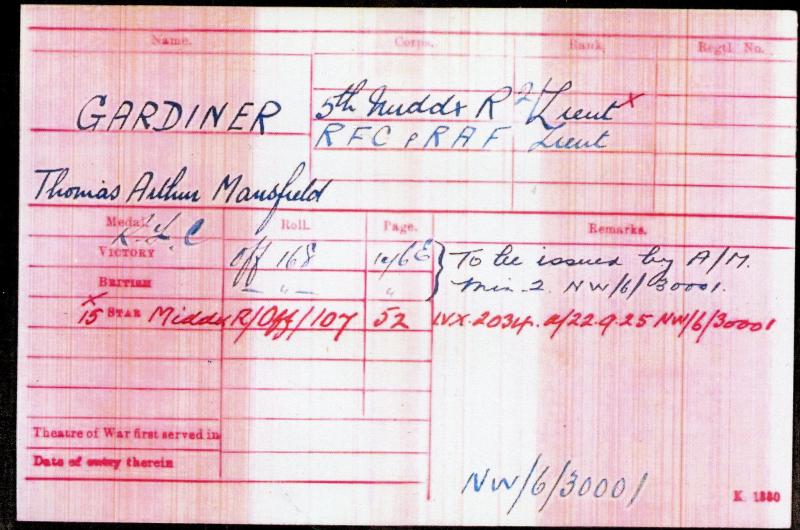 Name. Corps. Rank. Regtl. No.
GARDINER 5th Middx R 2/Lieut x
R F C & R A F Lieut
Thomas Arthur Mansfield
Medal. Roll. Page. Remarks.
VICTORY Off 168 To be issued by A/M.
BRITISH — " — " Min. 2. NW/6/30001.
x
15 STAR Middx R/Off/107 52 IVX. 2034. d/22.9.25 NW/6/30001
Theatre of War first served in
Date of entry therein
NW/6/30001
K. 1380